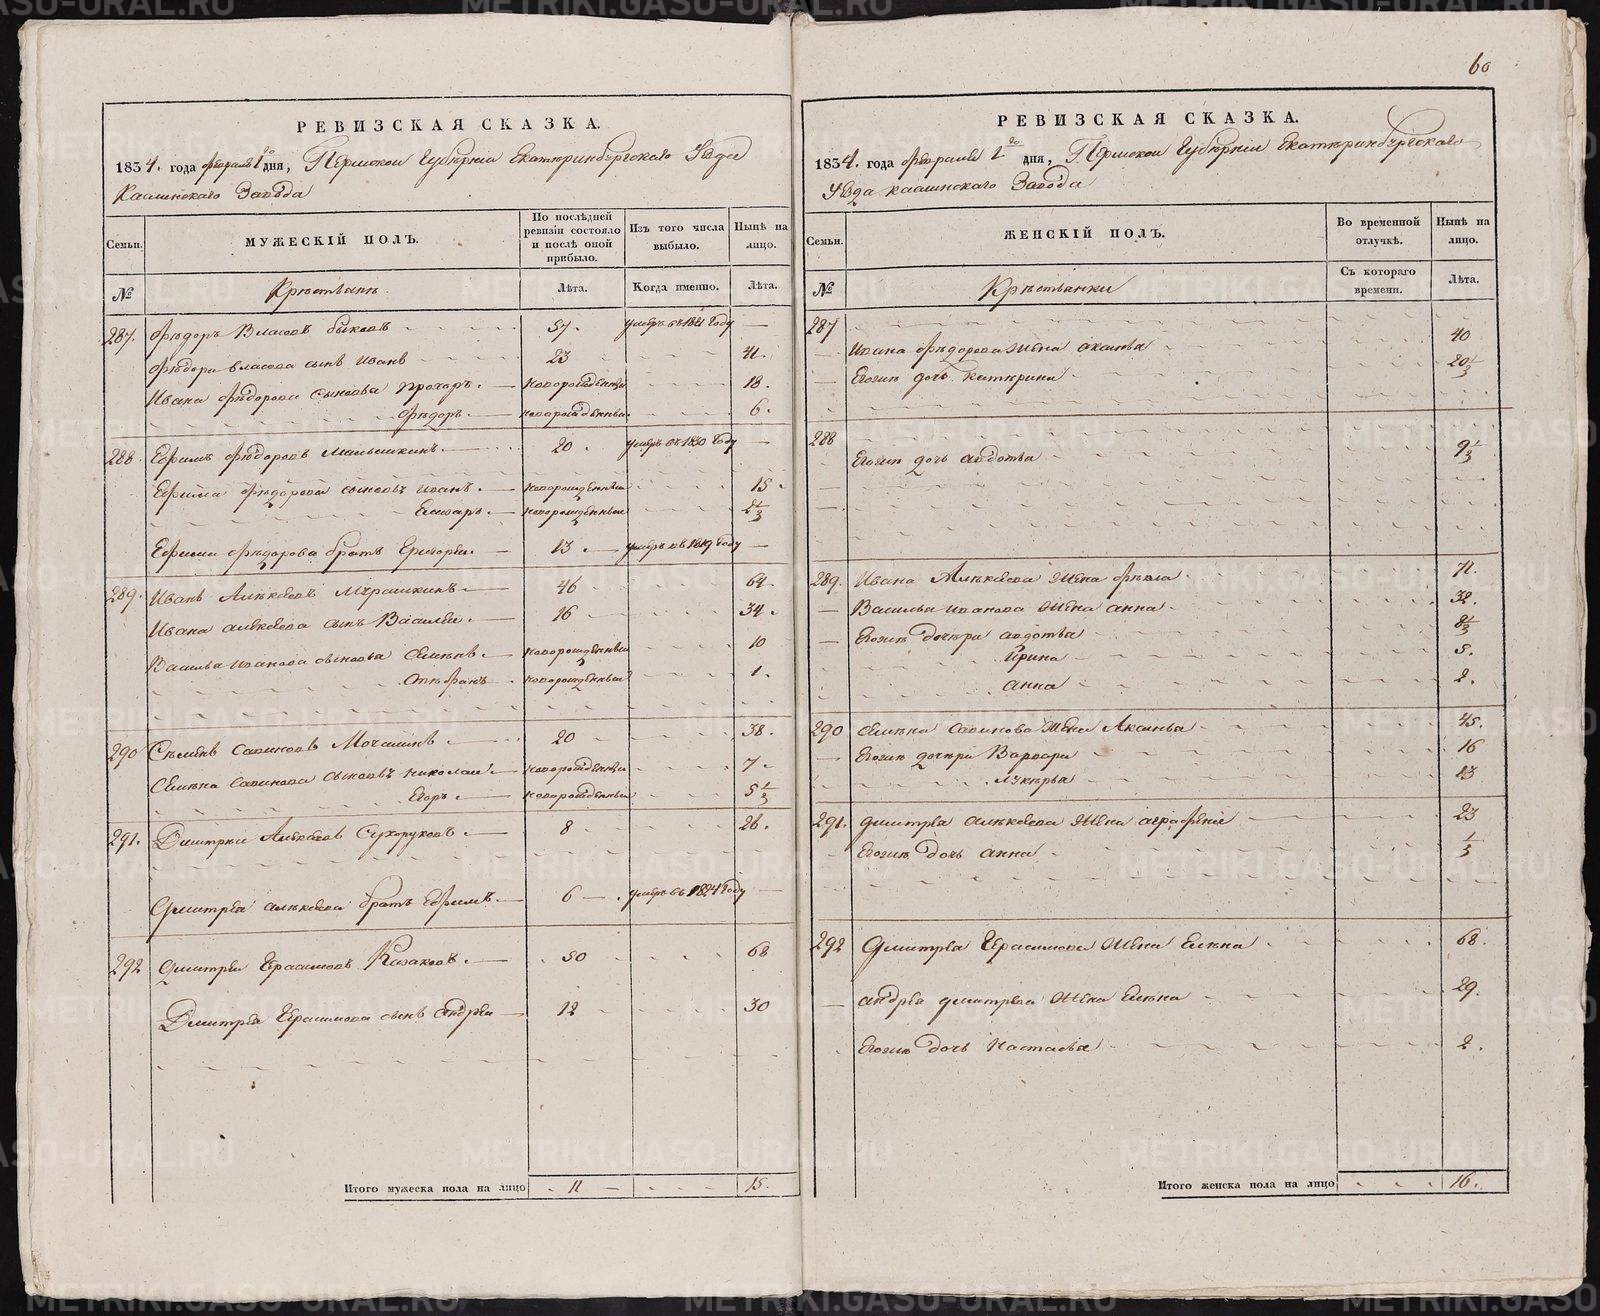 60
РЕВИЗСКАЯ СКАЗКА.
1834. года февраля 1го дня, Пермской Губернии Екатеринбургскаго Уезда
Каслинскаго Завода
Семьи.
МУЖЕСКІЙ ПОЛЪ.
По послѣдней ревизіи состояло и послѣ оной прибыло.
Изъ того числа выбыло.
Нынѣ на лицо.
№
Крестьяне
Лѣта.
Когда именно.
Лѣта.
287. Федоръ Власовъ Быковъ 57. умеръ въ 1821 Году
Федора Власова сынъ Иванъ 23 41.
Ивана Федорова сыновья Прохоръ. новорожденны 18.
Федоръ. новорожденны. 6.
288. Ефимъ Федоровъ Малышкинъ. 20. умеръ въ 1830 Году
Ефима Федорова сыновья Иванъ. новорожденны 15.
Елизаръ. новорожденны 2 1/3
Ефима Федорова братъ Григореи. 13. умеръ въ 1819 Году
289. Иванъ Алексеевъ Мурашкинъ 46 64.
Ивана Алексеева сынъ Василеи. 16 34.
Василья Иванова сыновья Семенъ. новорожденны 10
Стефанъ новорожденны 1.
290 Семенъ Савиновъ Мочалинъ 20 38.
Семена Савинова сыновья Николаи новорожденны 7.
Егоръ. новорожденны 5 1/3
291. Дмитреи Алексеевъ Сухоруковъ. 8 26.
Дмитрея Алексеева братъ Ефимъ. 6 умеръ въ 1824 Году
292 Дмитреи Герасимовъ Казаковъ. 50 68
Дмитрея Герасимова сынъ Андреи 12 30
Итого мужеска пола на лицо 11 15.
РЕВИЗСКАЯ СКАЗКА.
1834. года февраля 1го дня, Пермской Губернии Екатеринбургскаго
Уезда Каслинскаго Завода
Семьи.
ЖЕНСКІЙ ПОЛЪ.
Во временной отлучкѣ.
Нынѣ на лицо.
№
Крестьянки
Съ котораго времени.
Лѣта.
287
Ивана Федорова жена 40
Егожъ дочь Катерина 20 1/3
288
Егожъ дочь Авдотья 9 1/3
289. Ивана Алексеева жена Фекла 71.
Василья Иванова жена Анна 32.
Егожъ дочери Авдотья 8 1/3
Ирина 5.
Анна 2.
290 Семена Савинова жена Аксинья 45.
Егожъ дочери Варвара 16
Лукерья 13
291. Дмитрея Алексеева жена Аграфена 23
Егожъ дочь Анна 1/3
292 Дмитрея Герасимова жена Елена 68.
Андрея Дмитрева жена Елена 29.
Егожъ дочь Настасья 2.
Итого женска пола на лицо 16.
METRIKI.GASO-URAL.RU